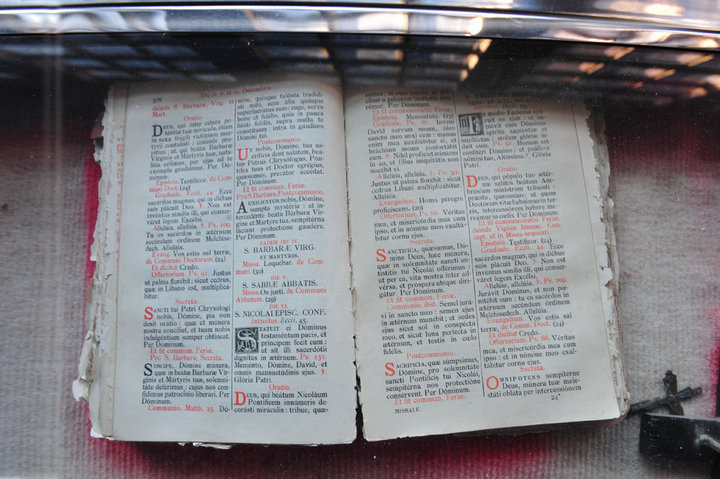 370
Die iv. v. et vi. Decembris.
deinde S. Barbaræ, Virg. et
Mart.
Oratio.
DEUS, qui inter cétera po-
téntiæ tuæ mirácula, étiam
in sexu frágili victóriam mar-
týrii contulísti : concéde pro-
pítius ; ut, qui beátæ Bárbaræ
Vírginis et Mártyris tuæ, na-
talítia cólimus, per ejus ad te
exémpla gradiámur. Per Dó-
minum.
Epistola. Testíficor. de Com.
Doct. (24)
Graduale. Eccli. 44. Ecce
sacérdos magnus, qui in diébus
suis plácuit Deo. ℣. Non est
invéntus símilis illi, qui conser-
váret legem Excélsi.
Allelúia, allelúia. ℣. Ps. 109.
Tu es sacérdos in ætérnum
secúndum órdinem Melchíse-
dech. Allelúia.
Evang. Vos estis sal terræ,
de Communi Doctorum. (24)
Et dicitur Credo.
Offertorium. Ps. 91. Justus
ut palma florébit : sicut cedrus,
quæ in Líbano est, multipli-
cábitur.
Secreta.
SANCTI tui Petri Chrysólogi
nobis, Dómine, pia non
desit orátio : quæ et múnera
nostra concíliet, et tuam nobis
indulgéntiam semper obtíneat.
Per Dóminum.
Et fit commem. Feriæ.
Pro S. Barbara, Secreta.
SUSCIPE, Dómine, múnera,
quæ in beátæ Bárbaræ Vír-
ginis et Mártyris tuæ, solemni-
táte deférimus ; cujus nos con-
fídimus patrocínio liberári. Per
Dóminum.
Communio. Matth. 25. Dó-
mine, quinque talénta tradidí-
sti mihi, ecce ália quinque
superlucrátus sum : euge, serve
bone et fidélis, quia in pauca
fuísti fidélis, supra multa te
constítuam : intra in gáudium
Dómini tui.
Postcommunio.
UT nobis, Dómine, tua sa-
crifícia dent salútem, beá-
tus Petrus Chrysólogus, Pón-
tifex tuus et Doctor egrégius,
quæsumus, precátor accédat.
Per Dóminum.
Et fit commem. Feriæ.
Pro S. Barbara, Postcommunio.
ADJUVENT nobis, Dómine,
sumpta mystéria : et in-
tercedénte beáta Bárbara Vír-
gine et Mártyre tua, sempitérna
fáciant protectióne gaudére.
Per Dóminum.
EADEM DIE IV.
S. BARBARÆ VIRG.
ET MARTYRIS.
Missa Loquébar. de Com-
muni. (30)
DIE V.
S. SABBÆ ABBATIS.
Missa. Os justi. de Communi
Abbatum. (29)
DIE VI.
S. NICOLAI EPISC. CONF.
Introitus. Eccli. 45.
STATUIT ei Dóminus
testaméntum pacis, et
príncipem fecit eum :
ut sit illi sacerdótii
dígnitas in ætérnum. Ps. 131.
Meménto, Dómine, David, et
omnis mansuetúdinis ejus. ℣.
Glória Patri.
Oratio.
DEUS, qui beátum Nicoláum
Pontíficem innúmeris de-
corásti miráculis : tríbue, quæ-
Ps. 131. Meménto. (24)
Graduale. Ps. 88. Invéni
David servum meum, óleo
sancto meo unxi eum : manus
enim mea auxiliábitur ei, et
bráchium meum confortábit
eum. ℣. Nihil profíciet inimícus
in eo, et fílius iniquitátis non
nocébit ei.
Allelúia, allelúia. ℣. Ps. 91.
Justus ut palma florébit : sicut
cedrus Líbani multiplicábitur.
Allelúia.
Evangelium. Homo péregre
proficíscens. (20)
Offertorium. Ps. 88. Véritas
mea, et misericórdia mea cum
ipso, et in nómine meo exaltá-
bitur cornu ejus.
Secreta.
SANCTIFICA, quæsumus,
Dómine Deus, hæc múnera,
quæ in solemnitáte sancti An-
tístitis tui Nicolái offérimus :
ut per ea, vita nostra inter ad-
vérsa, et próspera ubíque diri-
gátur. Per Dóminum.
Et fit commem. Feriæ.
Communio. ibid. Semel jurá-
vi in sancto meo : semen ejus
in ætérnum manébit : et sedes
ejus sicut sol in conspéctu
meo, et sicut luna perfécta in
ætérnum : et testis in cœlo
fidélis.
Postcommunio.
SACRIFICIA, quæ súmpsimus,
Dómine, pro solemnitáte
sancti Pontíficis tui Nicolái,
sempitérna nos protectióne
consérvent. Per Dóminum.
Et fit commem. Feriæ.
MISSALE
IN médio Ecclésiæ
spíritu sapiéntiæ et
gloriæ. Ps. 91. Bonum
est confitéri Dómino : et psállere
nómini tuo, Altíssime. ℣. Glória
Patri.
Oratio.
DEUS, qui pópulo tuo
ætérnæ salútis beátum Am-
brósium minístrum tribuísti :
præsta, quæsumus ; ut quem
Doctórem vitæ habúimus in ter-
ris, intercessórem habére me-
reámur in cœlis. Per Dóminum.
Et fit commemoratio Feriæ,
deinde Vigiliæ Immac. Con-
cept. ut in Missa sequenti.
Epistola. Testíficor. (24)
Graduale. Eccli. 44. Ecce
sacérdos magnus, qui in diébus
suis plácuit Deo. ℣. Non est
invéntus símilis illi, qui conser-
váret legem Excélsi.
Allelúia, allelúia. ℣. Ps. 109.
Jurávit Dóminus, et non pœ-
nitébit eum : tu es sacérdos
in ætérnum secúndum órdinem
Melchísedech. Allelúia.
Evangelium. Vos estis sal
terræ, de Comm. Doct. (24)
Et dicitur Credo.
Offertorium. Ps. 88. Véritas
mea, et misericórdia mea cum
ipso : et in nómine meo exal-
tábitur cornu ejus.
Secreta.
OMNIPOTENS sempitérne
Deus, múnera tuæ maje-
státi obláta per intercessiónem
24*